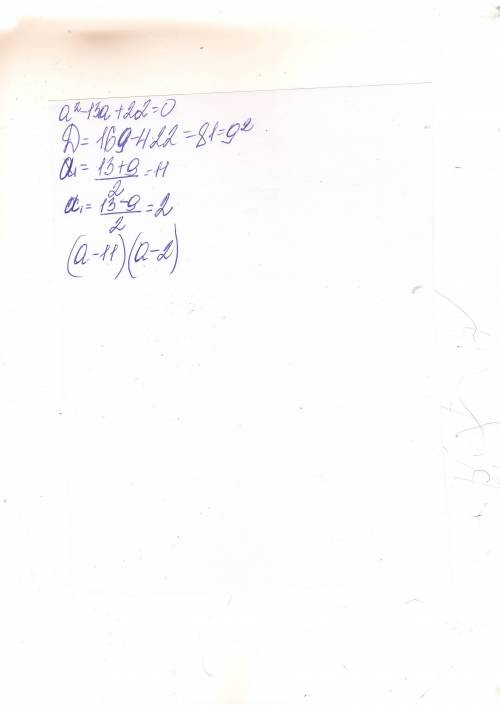 a²-13a+22=0
D=169-4·22=81=9²
a₁=(13+9)/2=11
a₁=(13-9)/2=2
(a-11)(a-2)